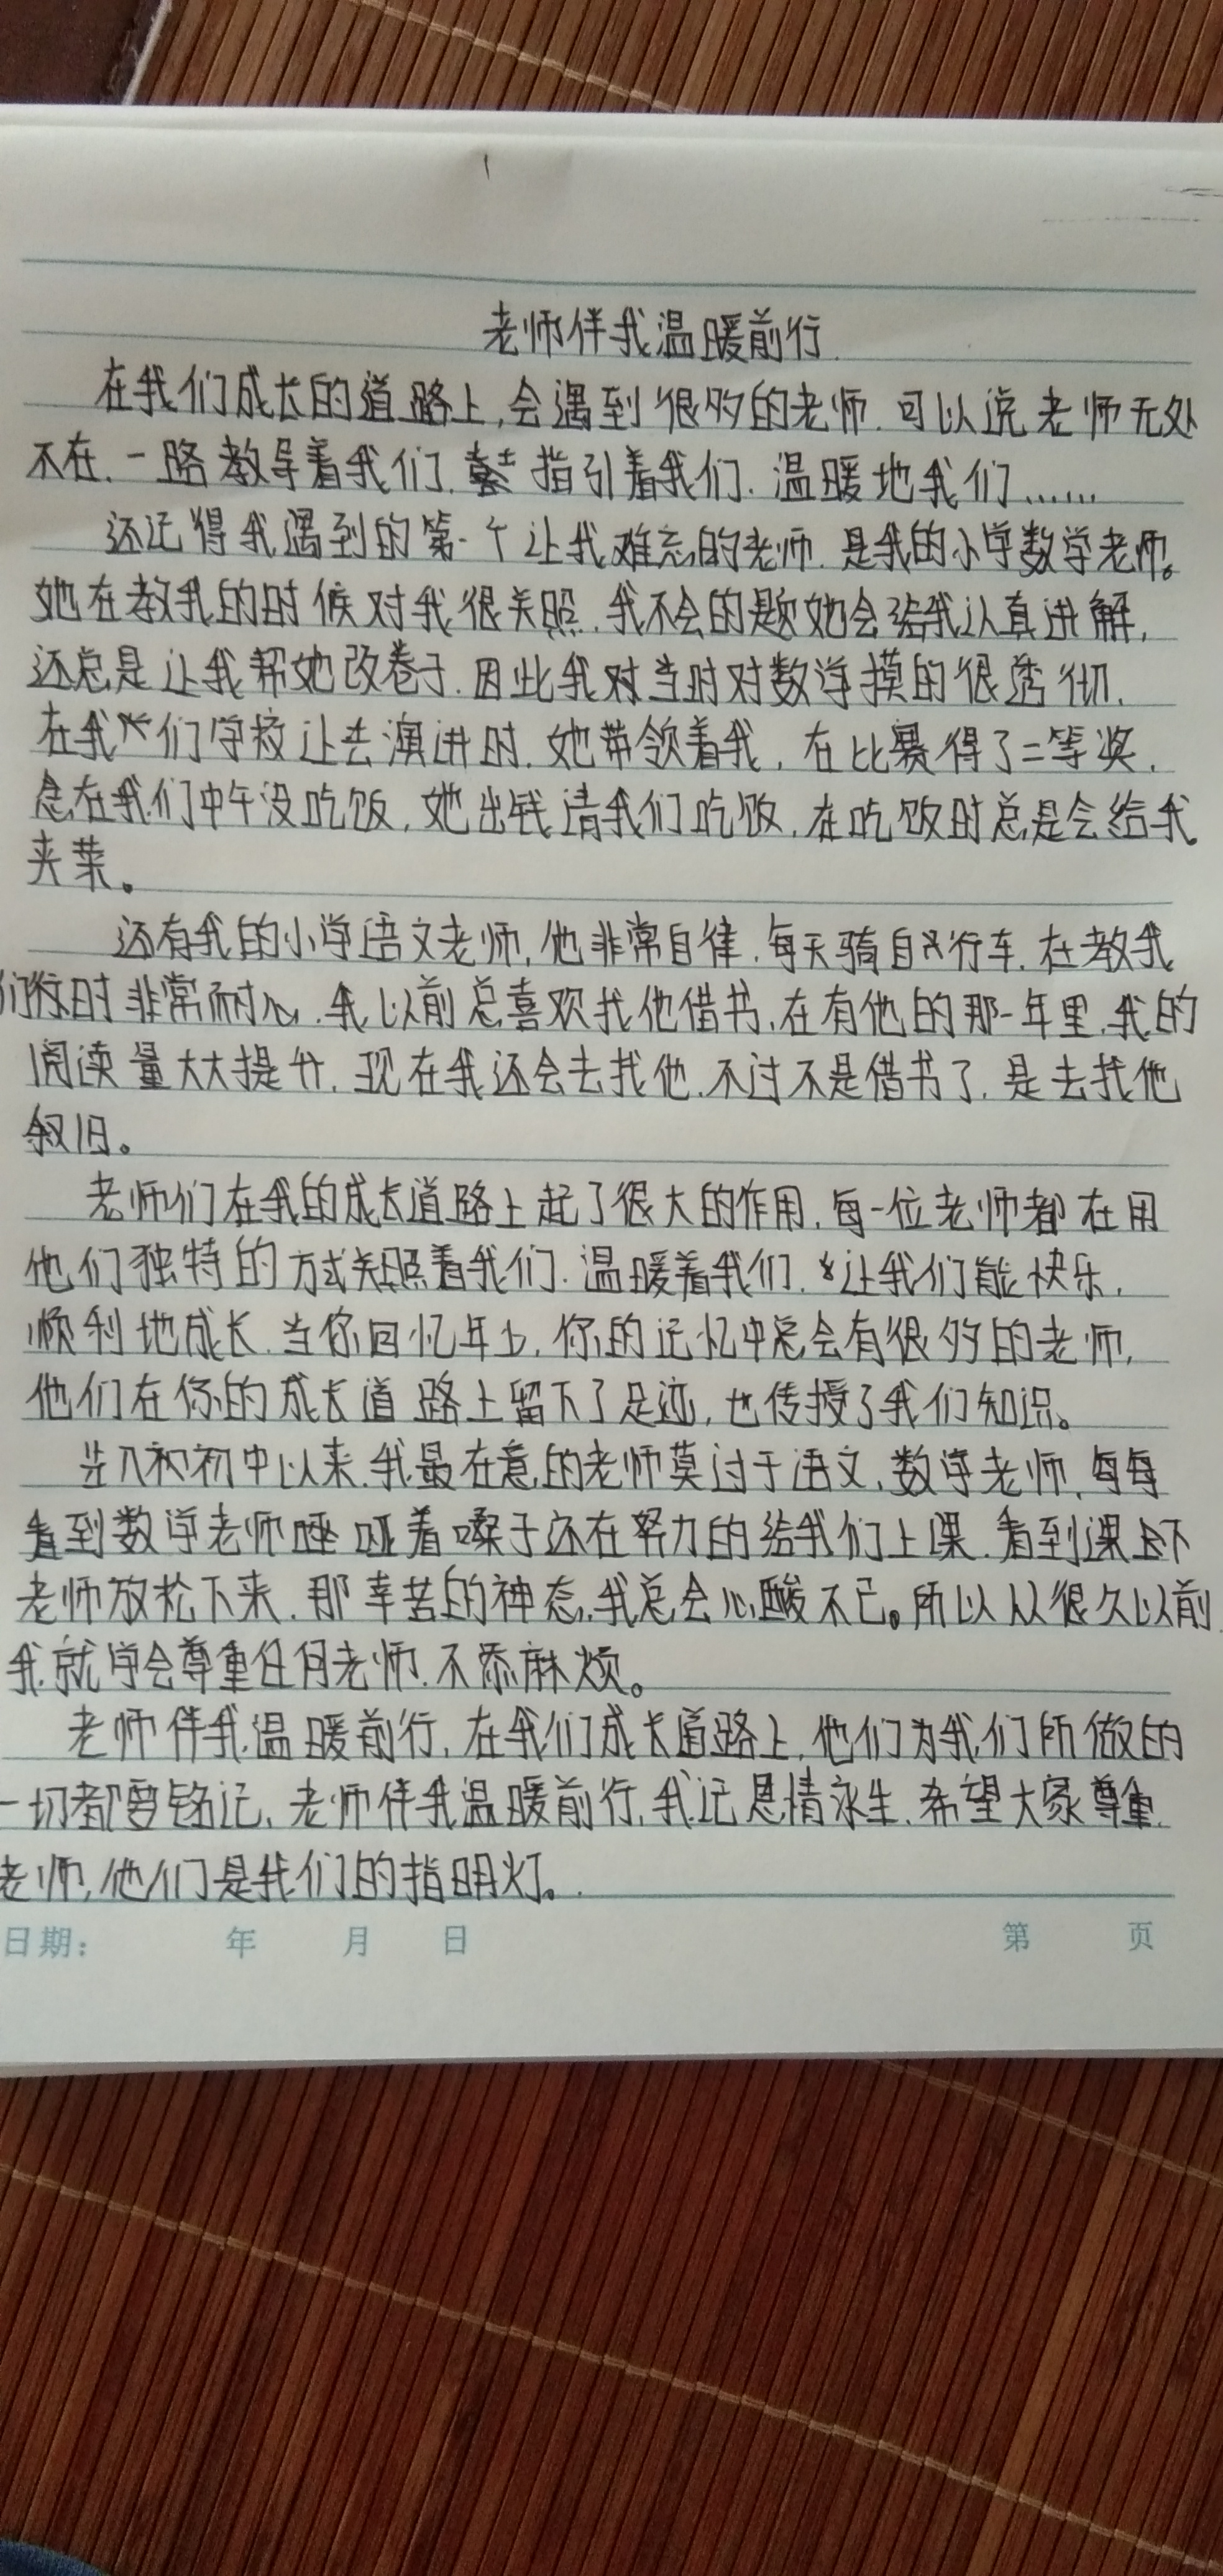 老师伴我温暖前行
在我们成长的道路上,会遇到很多的老师.可以说老师无处
不在.一路教导着我们.指引着我们.温暖地我们……
还记得我遇到的第一个让我难忘的老师.是我的小学数学老师。
她在教我的时候对我很关照.我不会的题她会给我认真讲解,
还总是让我帮她改卷子.因此我对当时对数学摸的很透彻.
在我们学校让去演讲时.她带领着我,在比赛得了二等奖.
在我们中午没吃饭,她出钱请我们吃饭,在吃饭时总是会给我
夹菜。
还有我的小学语文老师,他非常自律.每天骑自行车.在教我
们时非常耐心.我以前总喜欢找他借书,在有他的那一年里.我的
阅读量大大提升.现在我还会去找他.不过不是借书了.是去找他
叙旧。
老师们在我的成长道路上起了很大的作用.每一位老师都在用
他们独特的方式关照着我们.温暖着我们.让我们能快乐.
顺利地成长.当你回忆年少,你的记忆中总会有很多的老师,
他们在你的成长道路上留下了足迹,也传授了我们知识。
步入初中以来.我最在意的老师莫过于语文、数学老师.每每
看到数学老师哑着嗓子还在努力的给我们上课.看到课下
老师放松下来.那辛苦的神态.我总会心酸不已。所以从很久以前
我就学会尊重任何老师.不添麻烦。
老师伴我温暖前行.在我们成长道路上,他们为我们所做的
一切都要铭记,老师伴我温暖前行,我记恩情永生.希望大家尊重
老师,他们是我们的指明灯。
日期: 年 月 日 第 页